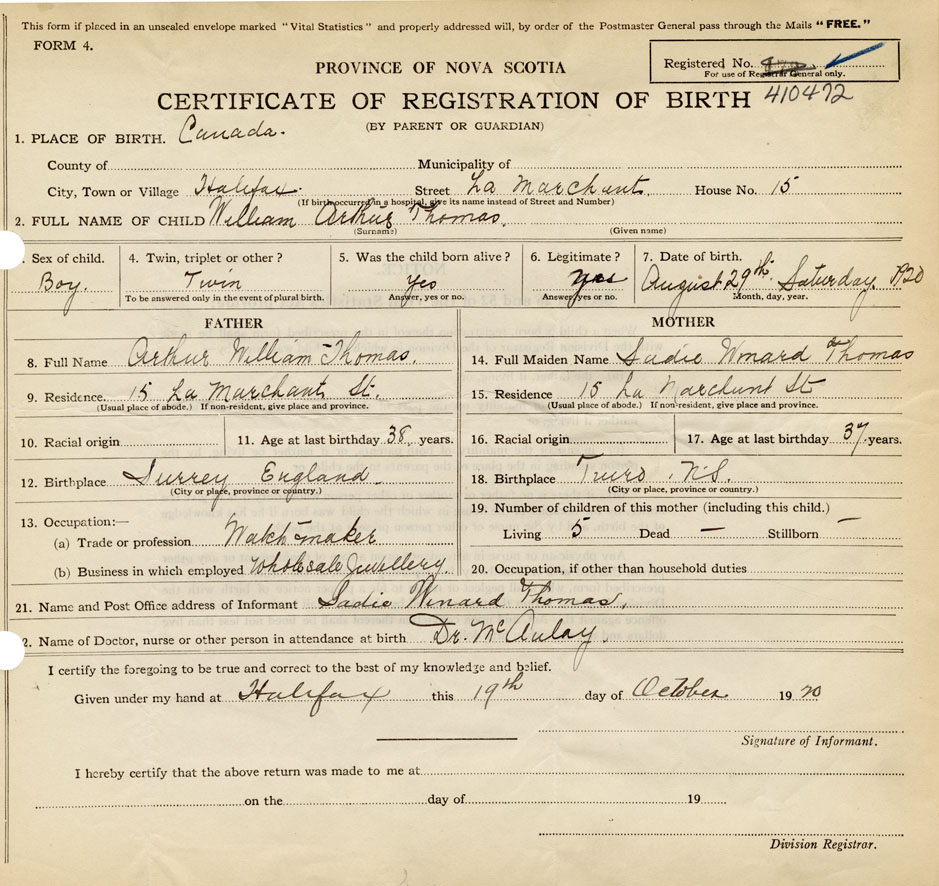 This form if placed in an unsealed envelope marked "Vital Statistics" and properly addressed will, by order of the Postmaster General pass through the Mails "FREE."
FORM 4.
Registered No.
For use of Registrar General only.
410472
PROVINCE OF NOVA SCOTIA
CERTIFICATE OF REGISTRATION OF BIRTH
(BY PARENT OR GUARDIAN)
1. PLACE OF BIRTH. Canada.
County of Municipality of
City, Town or Village Halifax. Street La Marchant. House No. 15
(If birth occurred in a hospital, give its name instead of Street and Number)
2. FULL NAME OF CHILD William Arthur Thomas.
(Surname) (Given name)
Sex of child. 4. Twin, triplet or other? 5. Was the child born alive? 6. Legitimate? 7. Date of birth.
Boy. Twin Yes yes August 29th. Saturday 1920
To be answered only in the event of plural birth. Answer, yes or no. Answer, yes or no. Month, day, year.
FATHER
8. Full Name Arthur William Thomas.
9. Residence. 15 La Marchant St.
(Usual place of abode.) If non-resident, give place and province.
10. Racial origin 11. Age at last birthday 38 years.
12. Birthplace Surrey England
(City or place, province or country.)
13. Occupation:—
(a) Trade or profession Watch maker
(b) Business in which employed Wholesale Jewellery
MOTHER
14. Full Maiden Name Sadie Winard Thomas
15. Residence 15 La Marchant St
(Usual place of abode.) If non-resident, give place and province.
16. Racial origin 17. Age at last birthday 37 years.
18. Birthplace Truro N.S.
(City or place, province or country.)
19. Number of children of this mother (including this child.)
Living 5 Dead — Stillborn —
20. Occupation, if other than household duties
21. Name and Post Office address of Informant Sadie Winard Thomas.
2. Name of Doctor, nurse or other person in attendance at birth Dr. McAulay.
I certify the foregoing to be true and correct to the best of my knowledge and belief.
Given under my hand at Halifax this 19th day of October 1920
Signature of Informant.
I hereby certify that the above return was made to me at
on the day of 19
Division Registrar.